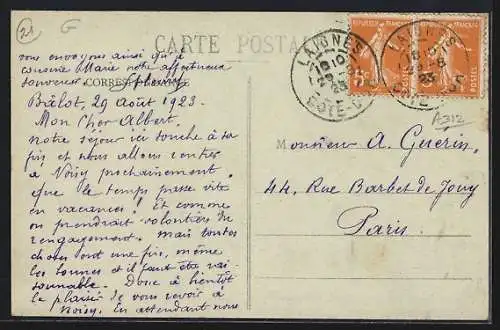 21
G
CARTE POSTALE
CORRESPONDANCE
vous envoyons ainsi qu'à
cousine Marie notre affectueux
souvenir.
Bâlot, 29 Août 1923.
Mon Cher Albert,
notre séjour ici touche à sa
fin et nous allons rentrer
à Noisy prochainement.
que le temps passe vite
en vacances! et comme
on prendrait volontiers du
rengagement. mais toutes
choses ont une fin, même
les bonnes et il faut être rai-
sonnable. Donc à bientôt
le plaisir de vous revoir à
Noisy. En attendant nous
REPUBLIQUE FRANCAISE
LAIGNES
18 10
29-8
23
COTE-D'OR
LAIGNES
18 10
29-8
23
A312
Monsieur A. Guérin,
44, Rue Barbet de Jouy
Paris.